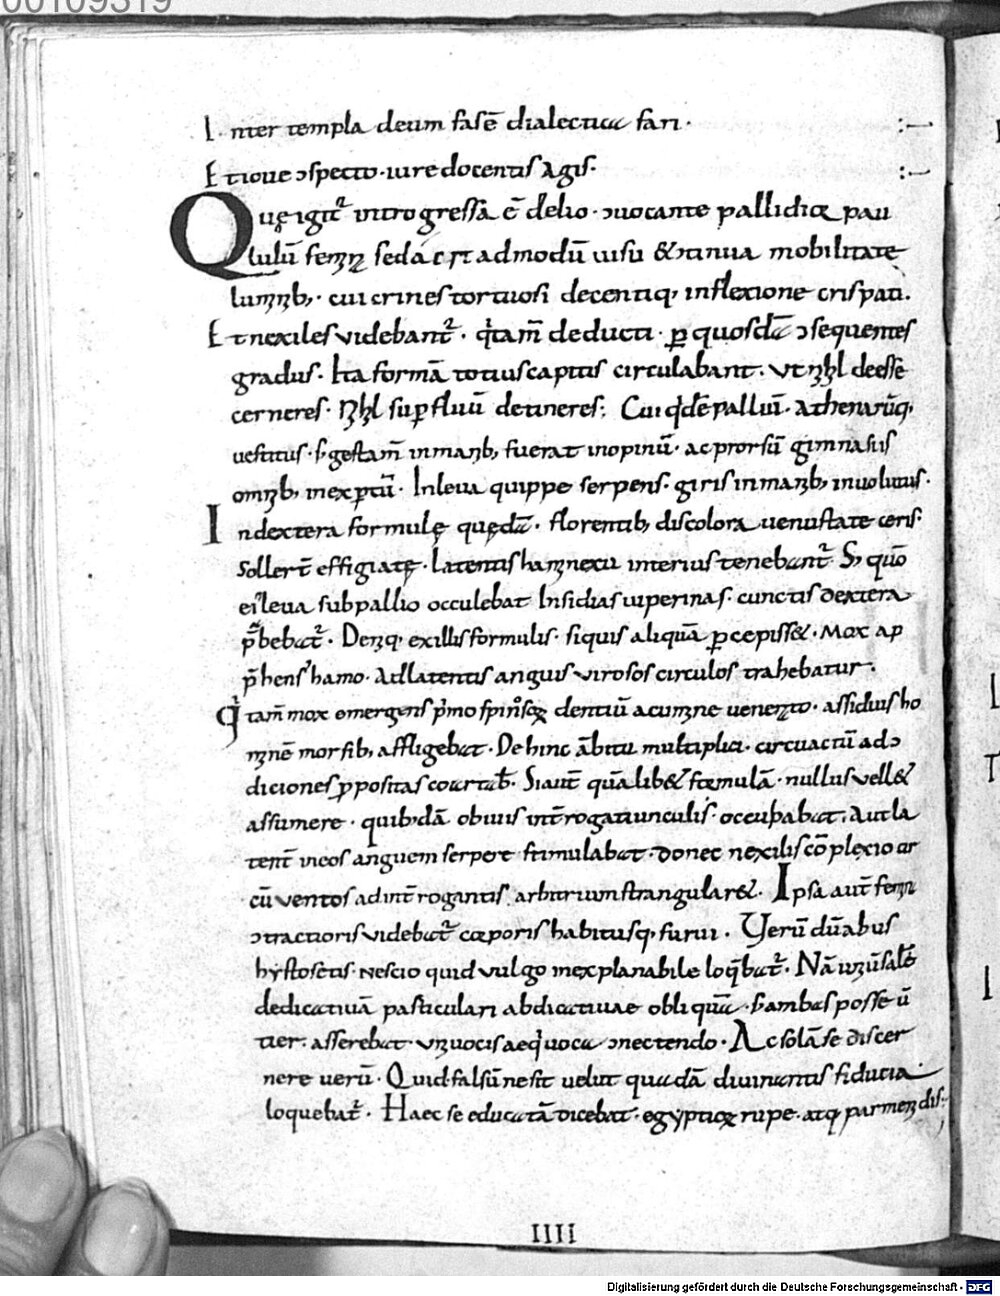 00109319
I nter templa deum fas ē dialectica fari·
E t ioue ɔspecto·iure docentis agis·
Quę igit᷑ introgressa ē delio·ɔuocante pallidior pau
lulū femina sed acri admodū uisu &ɔtinua mobilitate
luminib;· cui crines tortuosi decentiq; inflexione crispati.
E t nexiles videbant᷑· q̇tam̄ deducti· ꝑ quosdā ɔsequentes
gradus· Ita formā totius capitis circulabant. vt nihil deesse
cerneres· Nihil suꝑfluū detineres; Cui q̇dē palliū· athenarūq;
uestitus· s; gestam̄ in manib; fuerat inopinū· ac prorsū gimnasiis
omnib; inexꝑtū· In leua quippe serpens· giris inmanib; inuolutus·
In dextera formulę quędā· florentib; discolora uenustate ceris·
sollert̄ effigiatę· latentis hami nexu interius tenebant᷑ S; quō
ei leua sub pallio occulebat Insidias uiperinas· cunctis dextera
p̄bebat᷑· Deniq; ex illis formulis· siquis aliquā ꝑcepiss&· Mox ap
p̄hens hamo· Ad latentis anguis virosos circulos trahebatur·
q̇ tam̄ mox emergens p̄mo spinosoꝝ dentiū acumine uenenato· assiduis ho
minē morsib; affligebat· Dehinc ābitu multiplici· circuactū ad ɔ
diciones ꝓpositas coartab̄· Si aut̄ quālib& formulā· nullus vell&
assumere· quibdā obuiis int̄rogatiunculis· occupabat. Aut la
tent̄ in eos anguem serpere stimulabat· donec nexilis cōplexio ar
cū ventos ad int̄rogantis arbitrium strangular&· Ipsa aut̄ femi
ɔtractioris videbat᷑ corporis habitusq; furui· Verū dūabus
hystosetis· nescio quid vulgo inexplanabile loq̄bat᷑· Nā uniūsalē
dedicatiuā particulari abdicatiuae obliquā· s; ambas posse ū
tier· asserebat· vniuocis aeq̇uoca ɔnectendo· Ac solā se discer
nere uerū· Quid falsū nesit uelut quadā diuinantis fiducia
loquebat᷑· Haec se educatā dicebat· egyptioꝝ rupe· atq; parmenidis·
IIII
Digitalisierung gefördert durch die Deutsche Forschungsgemeinschaft - DFG